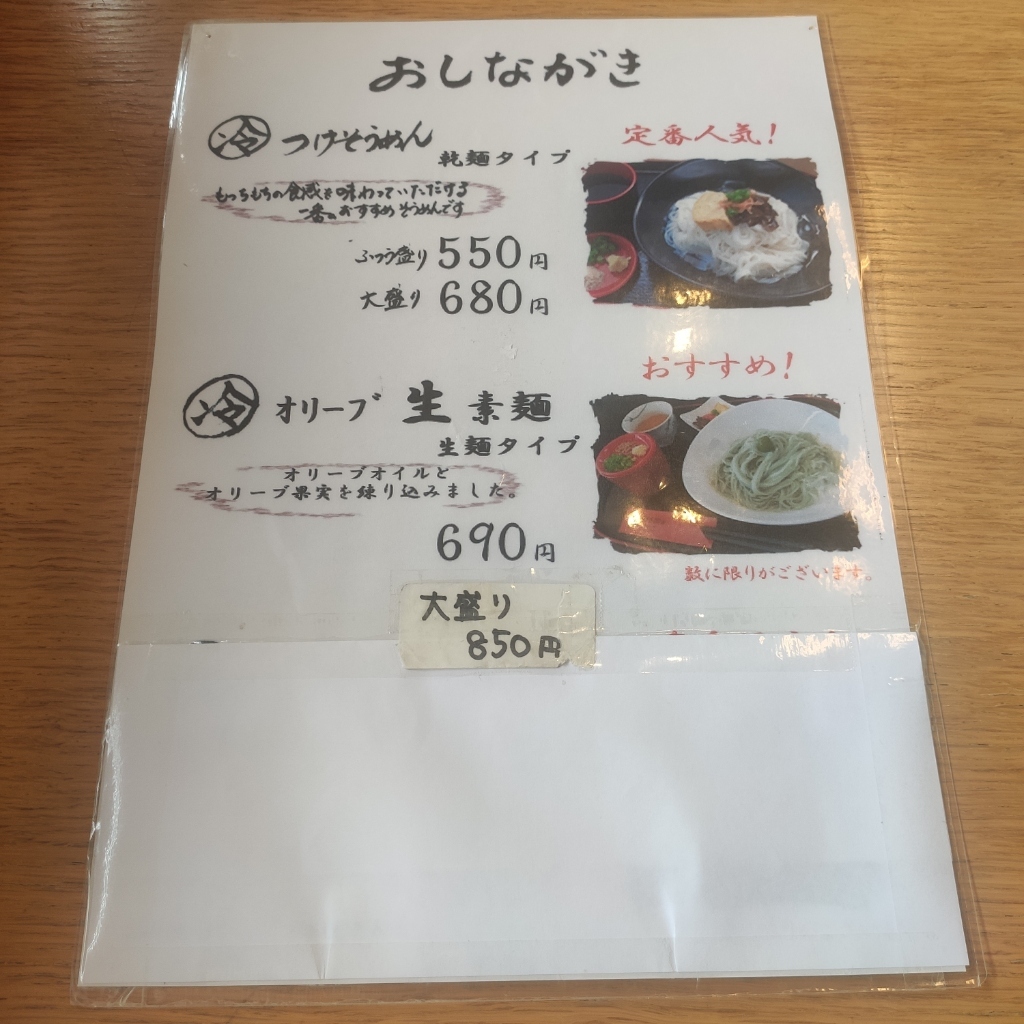 おしながき
冷 つけそうめん
乾麺タイプ
定番人気!
もっちもちの食感を味わっていただける
一番のおすすめそうめんです
ふつう盛り 550円
大盛り 680円
おすすめ!
冷 オリーブ 生 素麺
生麺タイプ
オリーブオイルと
オリーブ果実を練り込みました。
690円
数に限りがございます。
大盛り
850円